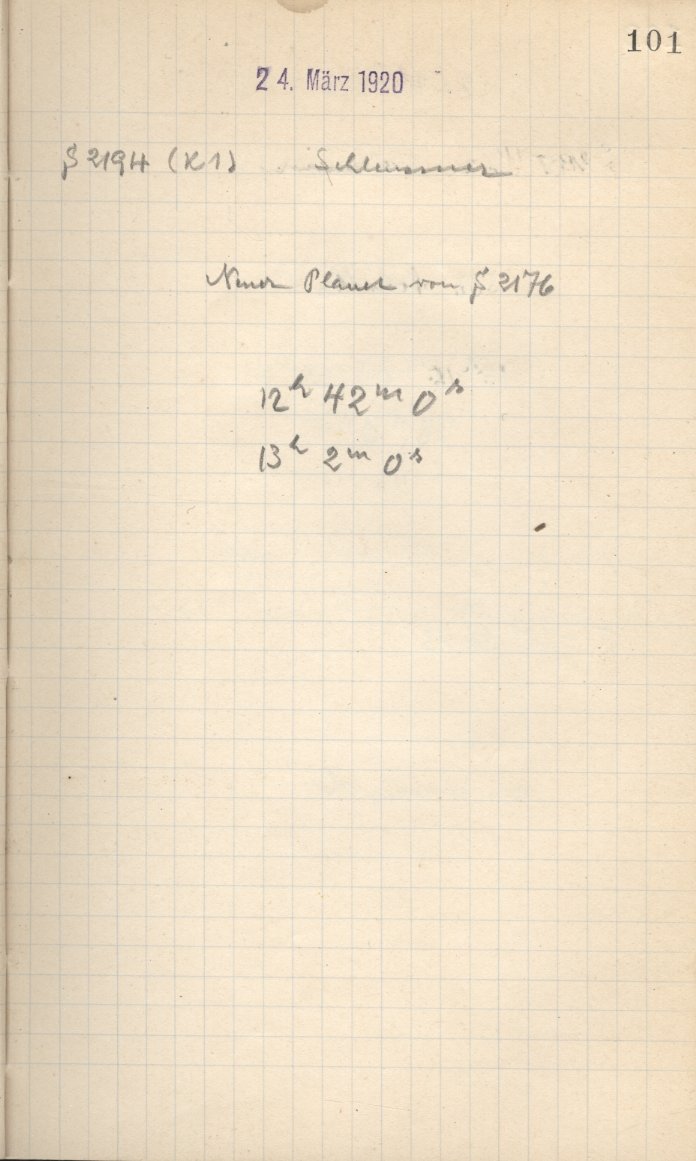 101
24. März 1920
β 2194 (K1) Schlussner
Neuer Planet von β 2176
12h 42m 0s
13h 2m 0s